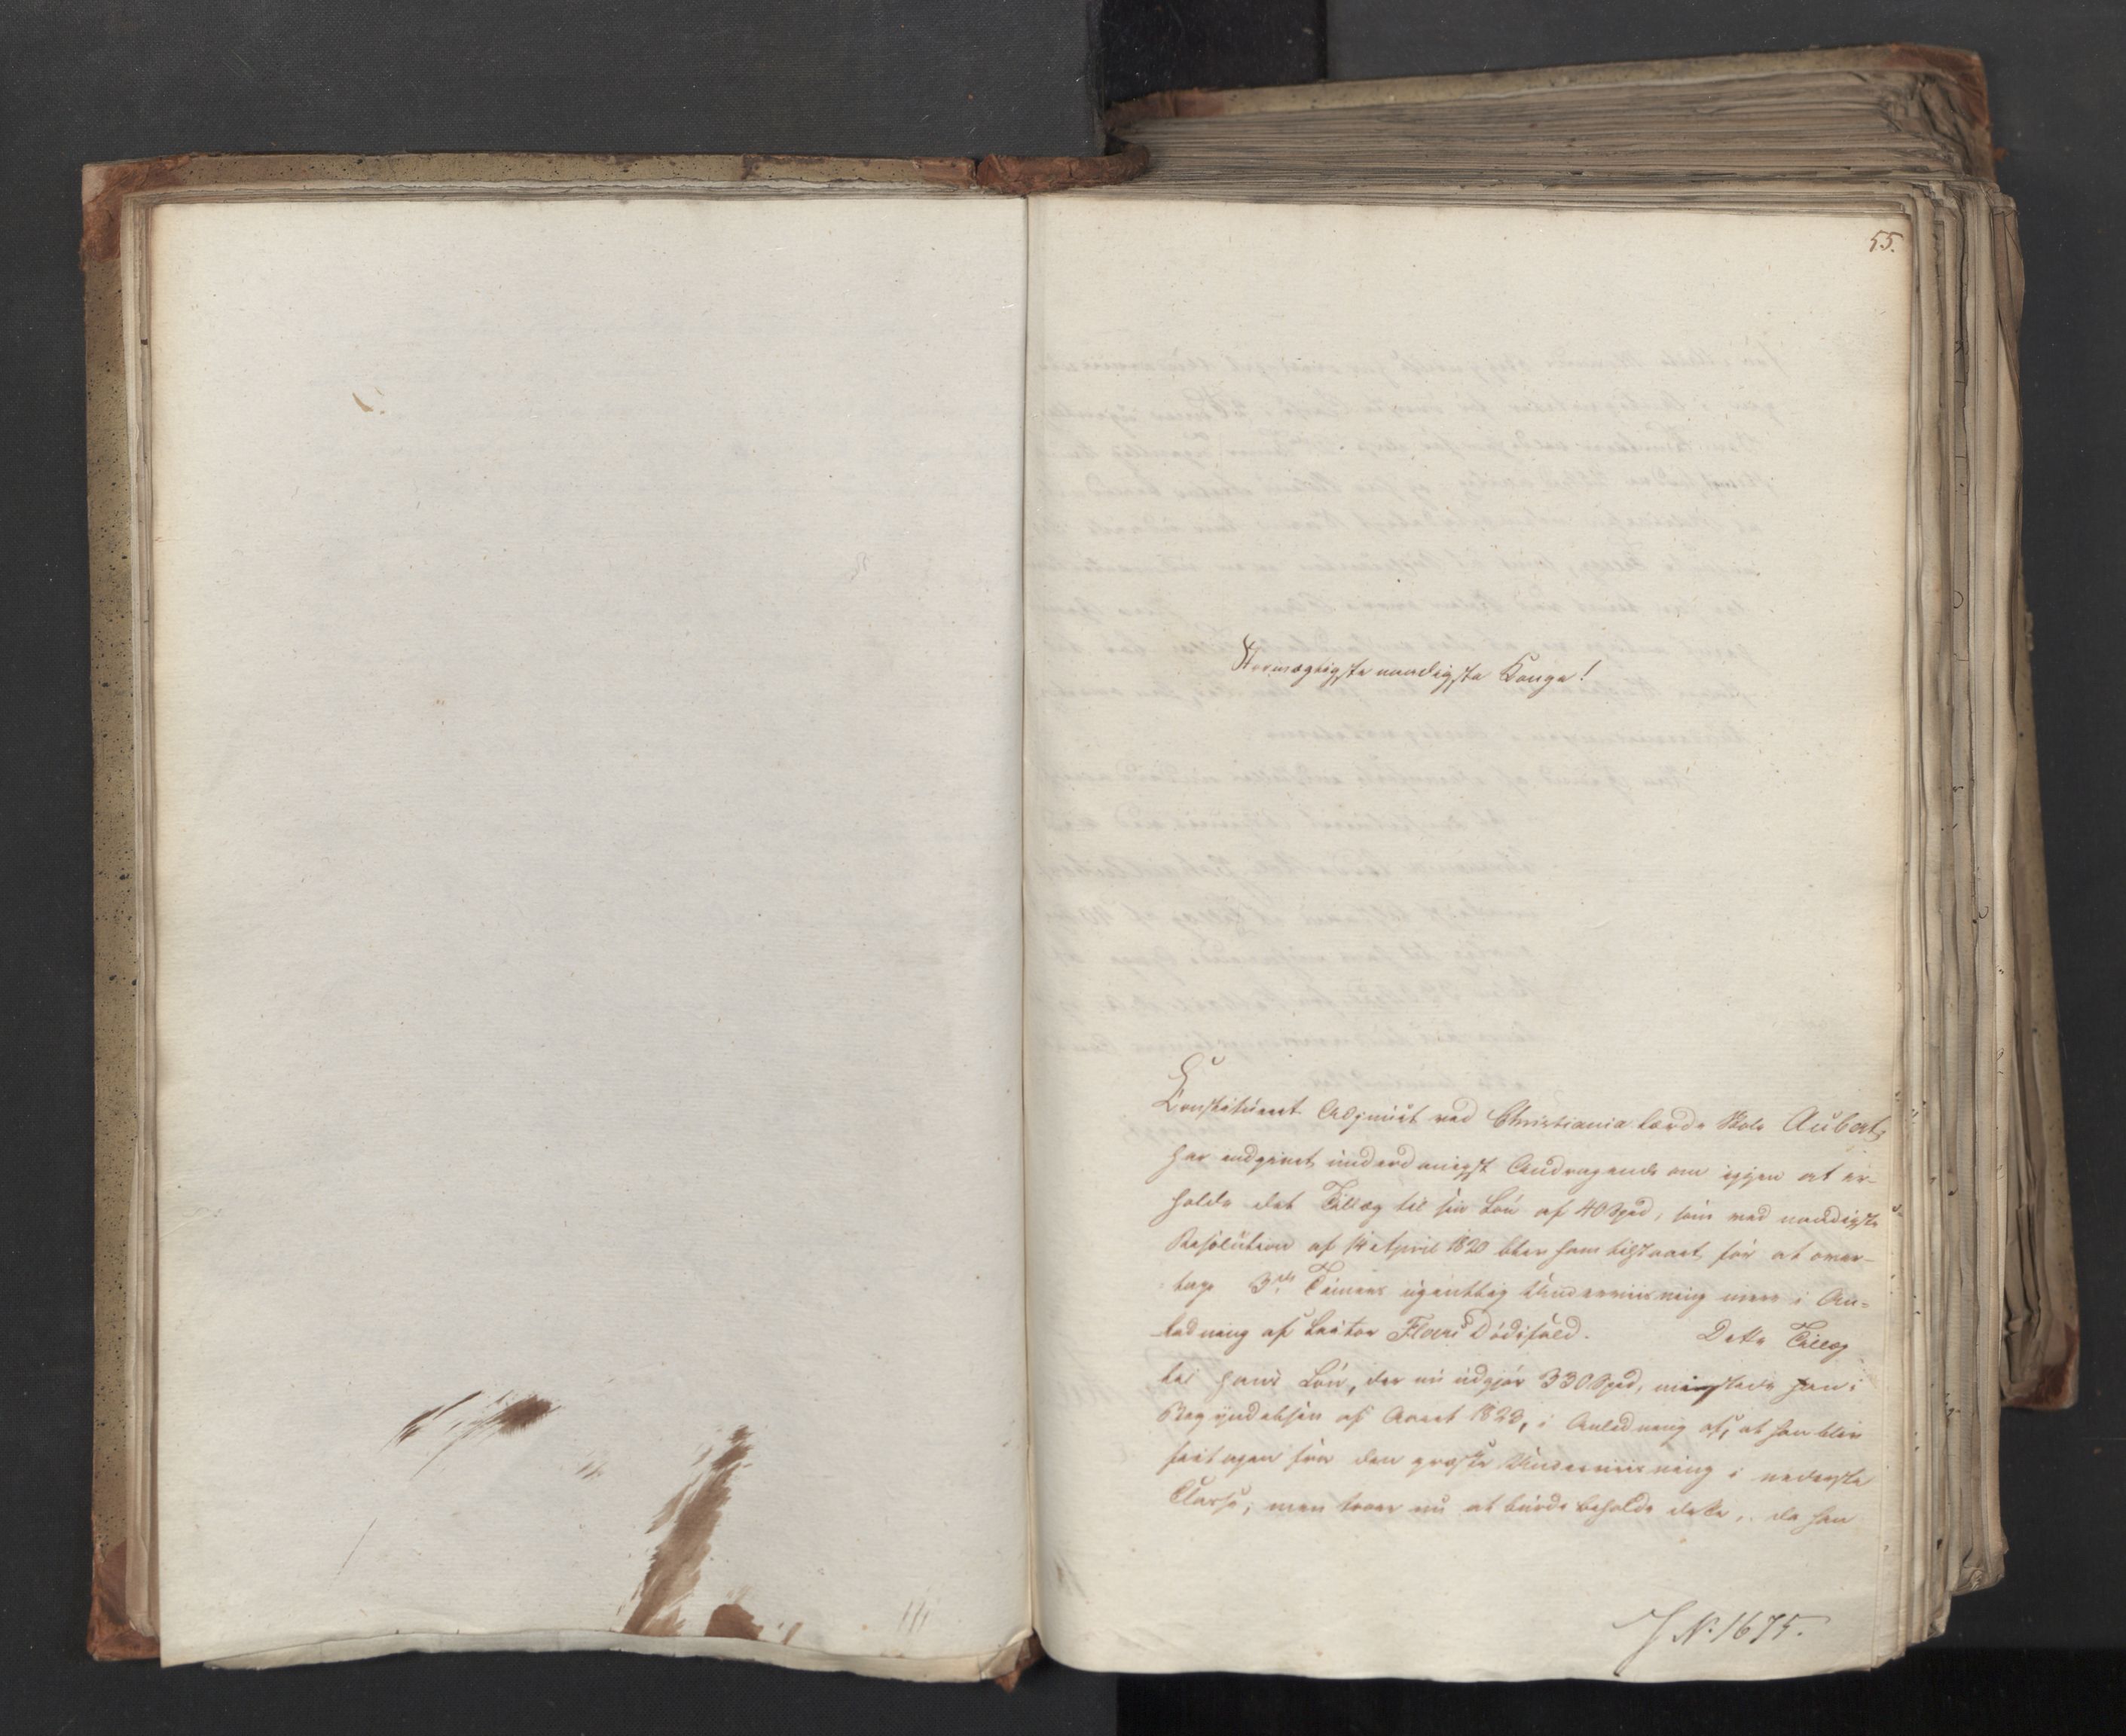 55.
Stormægtigste naadigste Konge!
Constitueret Adjunct ved Christiania lærde Skole Aubert,
har indgivet underdanigst Andragende om igjen at er-
holde det Tillæg til sin Løn af 40 Spd, som ved naadigste
Resolution af 14 April 1820 blev ham tilstaaet for at over-
tage 3de Timers ugentlig Underviisning mere i An-
ledning af Lector Flors Dødsfald. Dette Tillæg
til hans Løn, der nu udgjør 330 Spd, mistede han i
Begyndelsen af Aaret 1823, i Anledning af, at han blev
fritagen for den græske Underviisning i nederste
Classe, men troer nu at burde beholde dette, da han
J. N. 1675.